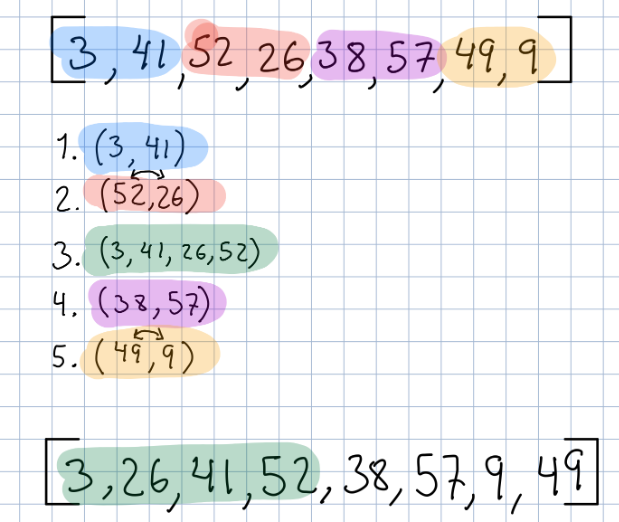 [3, 41, 52, 26, 38, 57, 49, 9]
1. (3, 41)
2. (52,26)
3. (3, 41, 26, 52)
4. (38, 57)
5. (49, 9)
[3, 26, 41, 52, 38, 57, 9, 49]